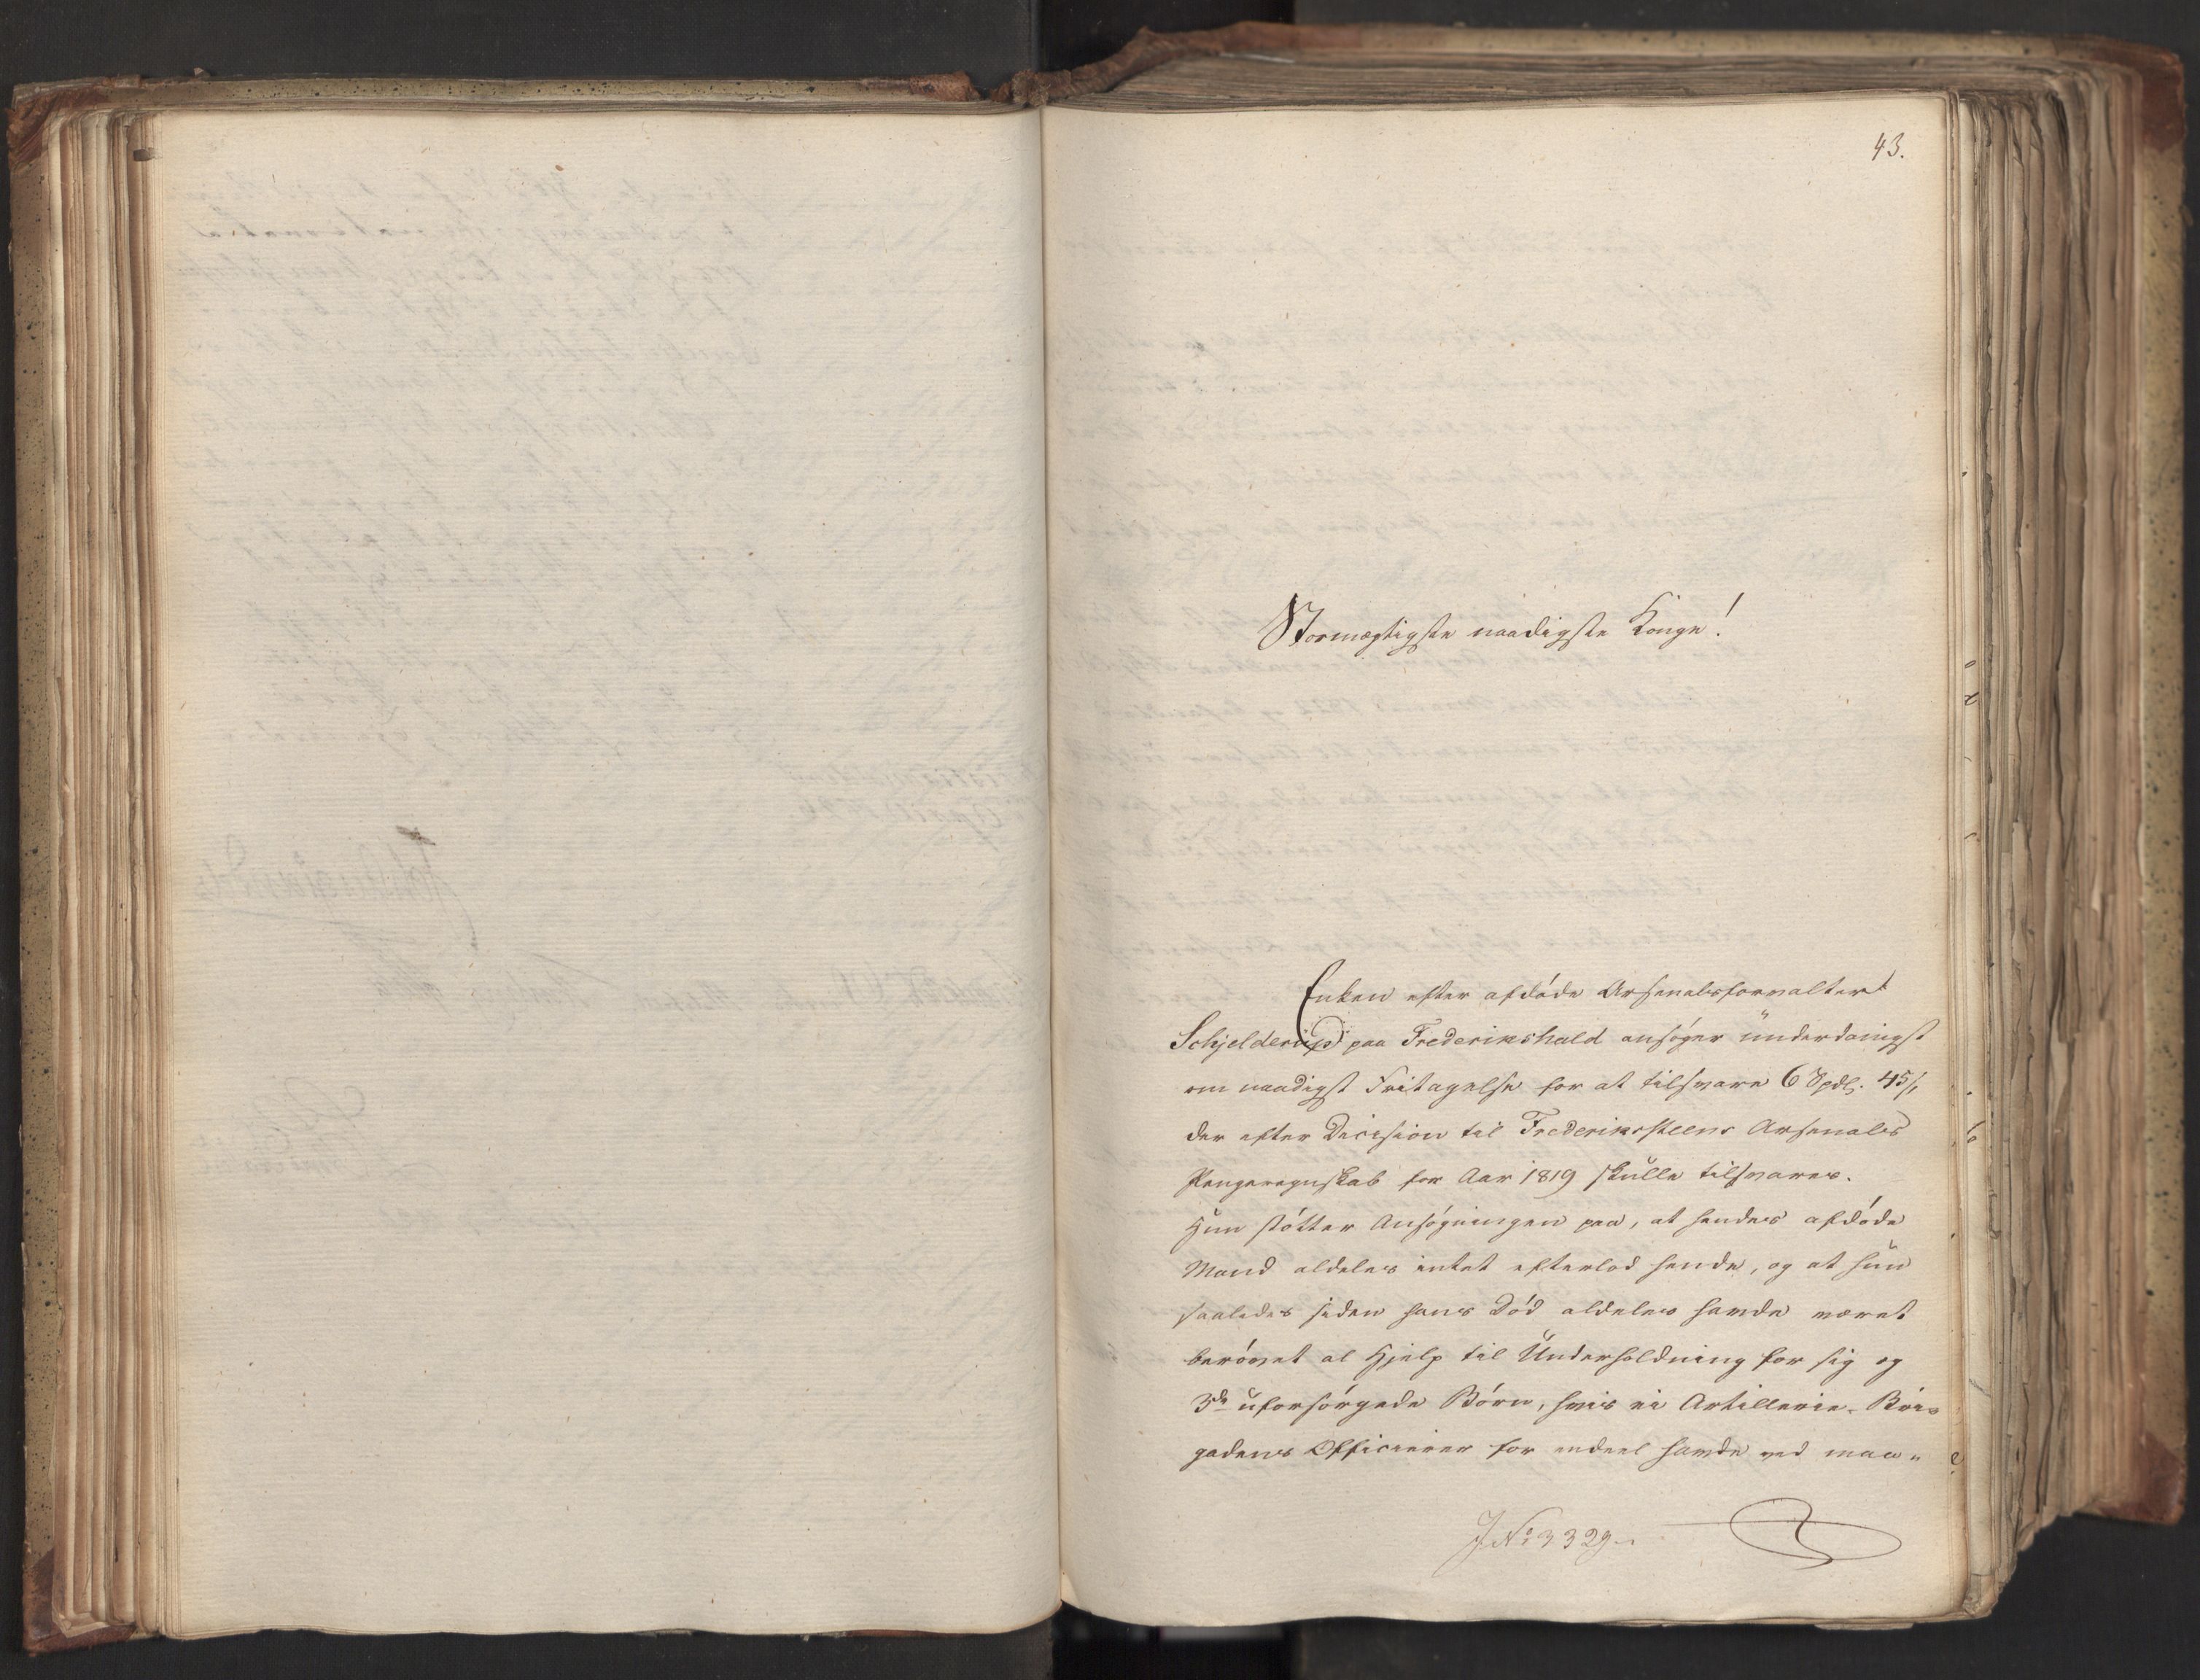 43.
Stormægtigste naadigste Konge!
Enken efter afdøde Arsenalsforvalter
Schjelderup paa Frederikshald ansøger underdanigst
om naadigst Fritagelse for at tilsvare 6 Spdl. 45 s,
der efter Decision til Frederikssteens Arsenals
Pengeregnskab for Aar 1819 skulle tilsvares.
Hun støtter Ansøgningen paa, at hendes afdøde
Mand aldeles intet efterlod hende, og at hun
saaledes siden hans Død aldeles havde været
berøvet al Hjelp til Underholdning for sig og
3de uforsørgede Børn, hvis ei Artillerie-Bri-
gadens Officierer for endeel havde ved maa-
J No 3329.